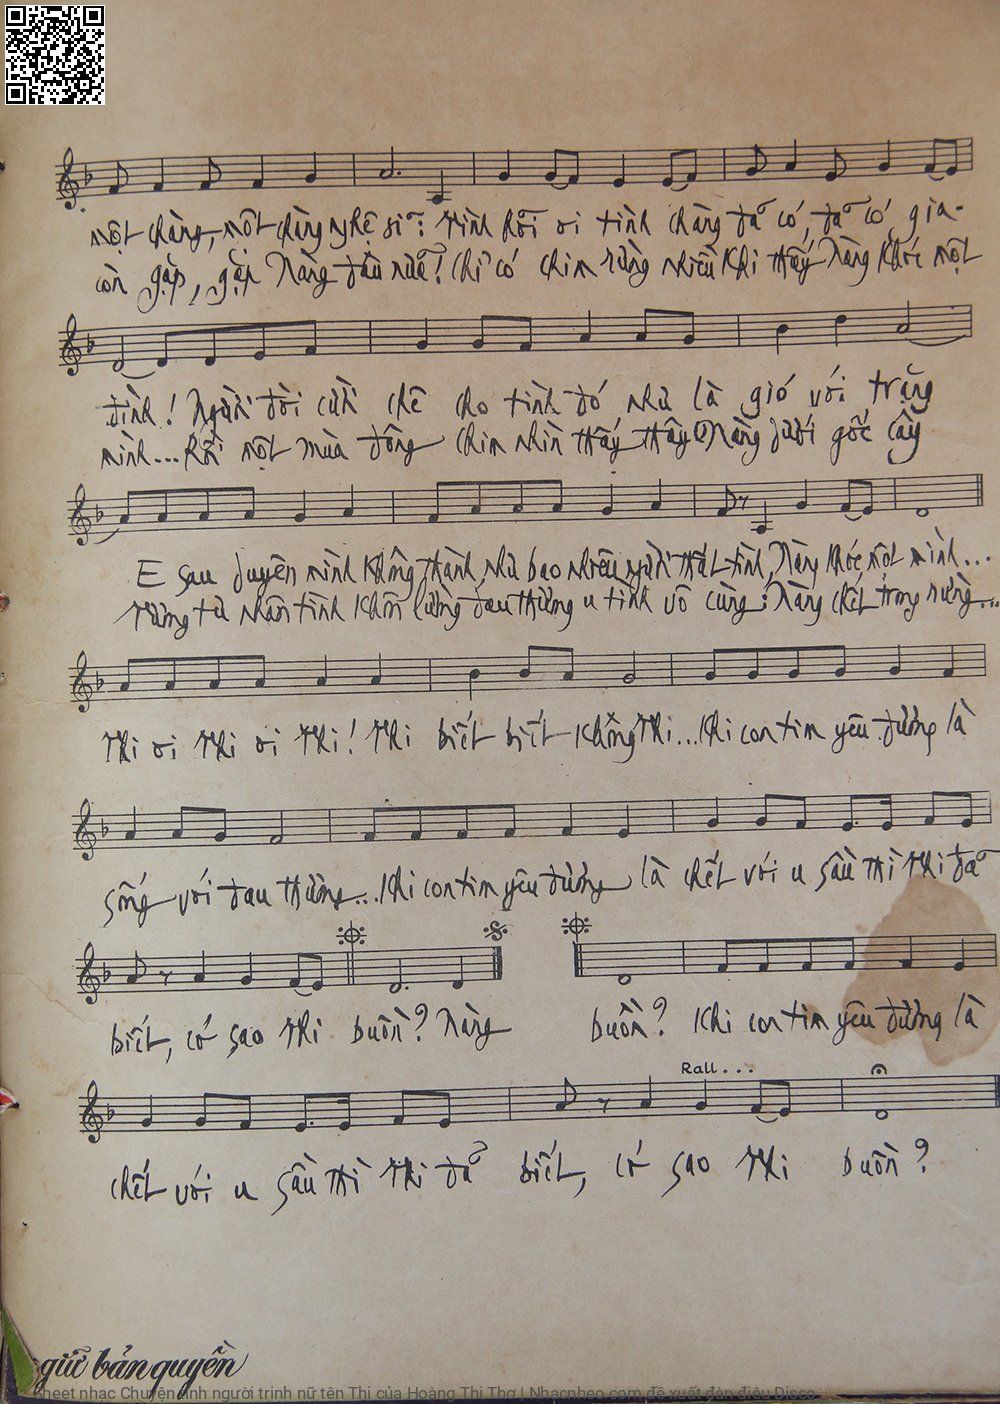 một chàng, một chàng nghệ sĩ: Tình hỡi ơi tình chàng đã có, đã có gia-
còn gặp, gặp Nàng đâu nữa! Chỉ có chim rừng nhiều khi thấy Nàng khóc một
đình! Người đời cười chê cho tình đó như là gió với trăng
mình... Rồi một mùa đông chim nhìn thấy thấy Nàng dưới gốc cây
E sau duyên mình không thành, như bao nhiêu người thất-tình, Nàng khóc một mình...
Tương tư nhân tình khôn lường đau thương u tình vô cùng: Nàng chết trong rừng...
Thi ơi Thi ơi Thi! Thi biết biết không Thi... Khi con tim yêu đương là
sống với đau thương... Khi con tim yêu đương là chết với u sầu Thì Thi đã
biết, cớ sao Thi buồn? Nàng buồn? Khi con tim yêu đương là
Rall...
chết với u sầu Thì Thi đã biết, cớ sao Thi buồn?
giữ bản quyền
Sheet nhạc Chuyện tình người trinh nữ tên Thi của Hoàng Thi Thơ | Nhacnheo.com đề xuất đàn điệu Disco